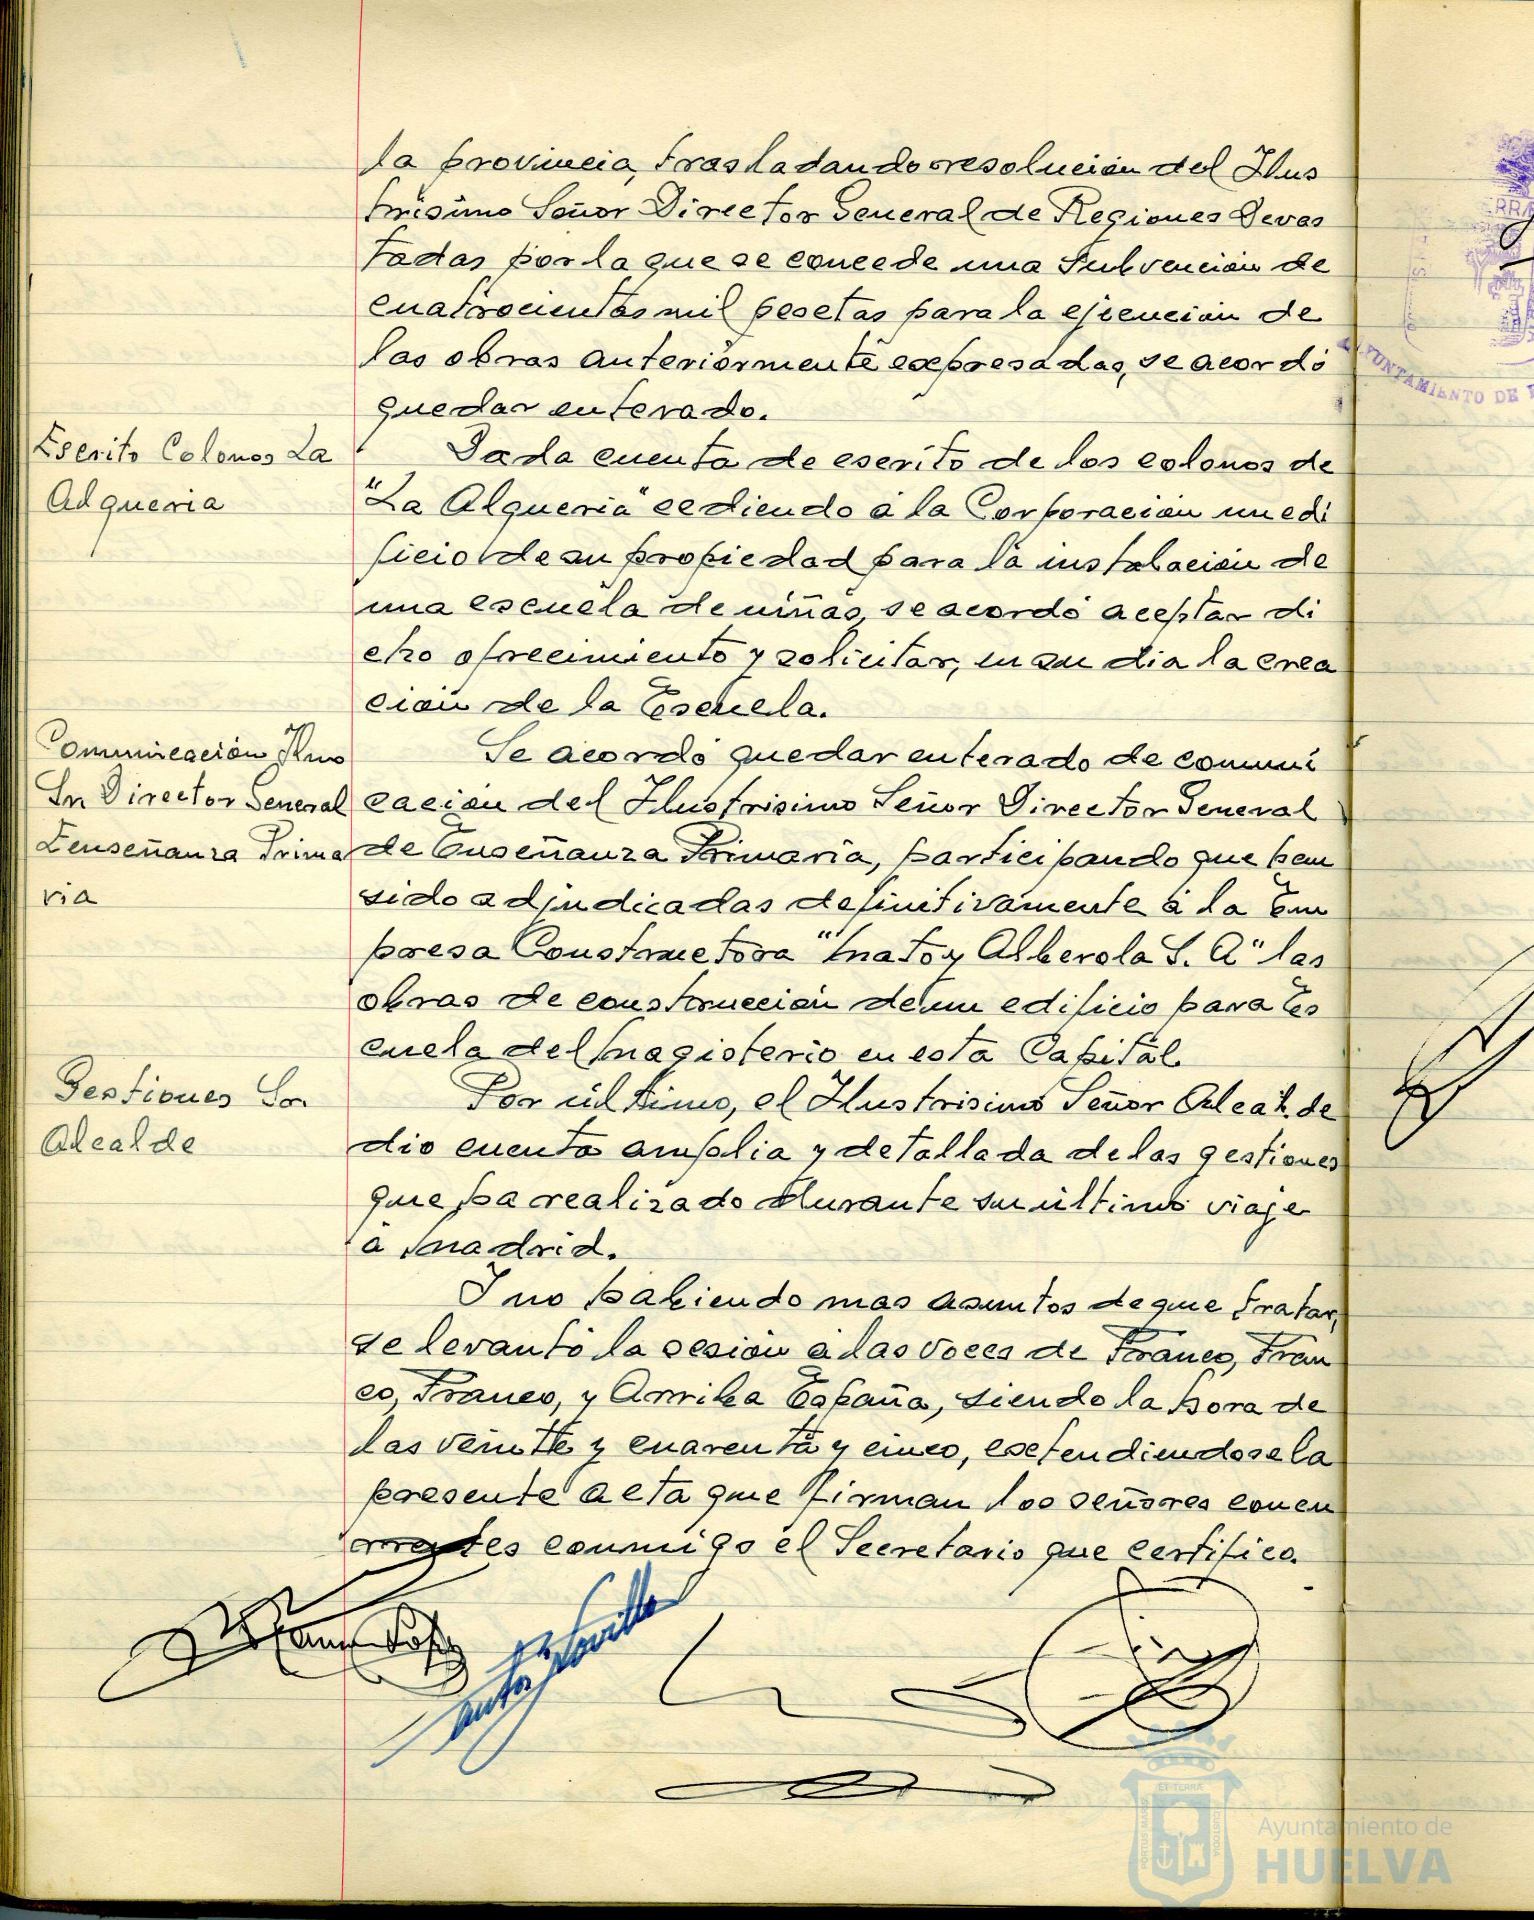 la provincia, trasladando resolución del Ilus
trisimo Señor Director General de Regiones Devas
tadas por la que se concede una Subvención de
cuatrocientas mil pesetas para la ejecución de
las obras anteriormente expresadas, se acordó
quedar enterado.
Escrito Colonos La
Alqueria
Dada cuenta de escrito de los colonos de
"La Alqueria" cediendo á la Corporación un edi
ficio de su propiedad para la instalación de
una escuela de niñas, se acordó aceptar di
cho ofrecimiento y solicitar, en su dia la crea
ción de la Escuela.
Comunicación Ilmo
Sr. Director General
Enseñanza Prima
ria
Se acordó quedar enterado de comuni
cación del Ilustrisimo Señor Director General
de Enseñanza Primaria, participando que han
sido adjudicadas definitivamente á la Em
presa Constructora "Mato y Alberola S. A" las
obras de construcción de un edificio para Es
cuela del Magisterio en esta Capital.
Gestiones Sr.
Alcalde
Por último, el Ilustrisimo Señor Alcalde
dio cuenta amplia y detallada de las gestiones
que ha realizado durante su último viaje
á Madrid.
Y no habiendo mas asuntos de que tratar,
se levantó la sesión á las voces de Franco, Fran
co, Franco, y Arriba España, siendo la hora de
las veinte y cuarenta y cinco, extendiendose la
presente acta que firman los señores concu
rrentes conmigo el Secretario que certifico.
AYUNTAMIENTO DE
ET TERRÆ
PORTUS MARIS
CUSTODIA
Ayuntamiento de
HUELVA